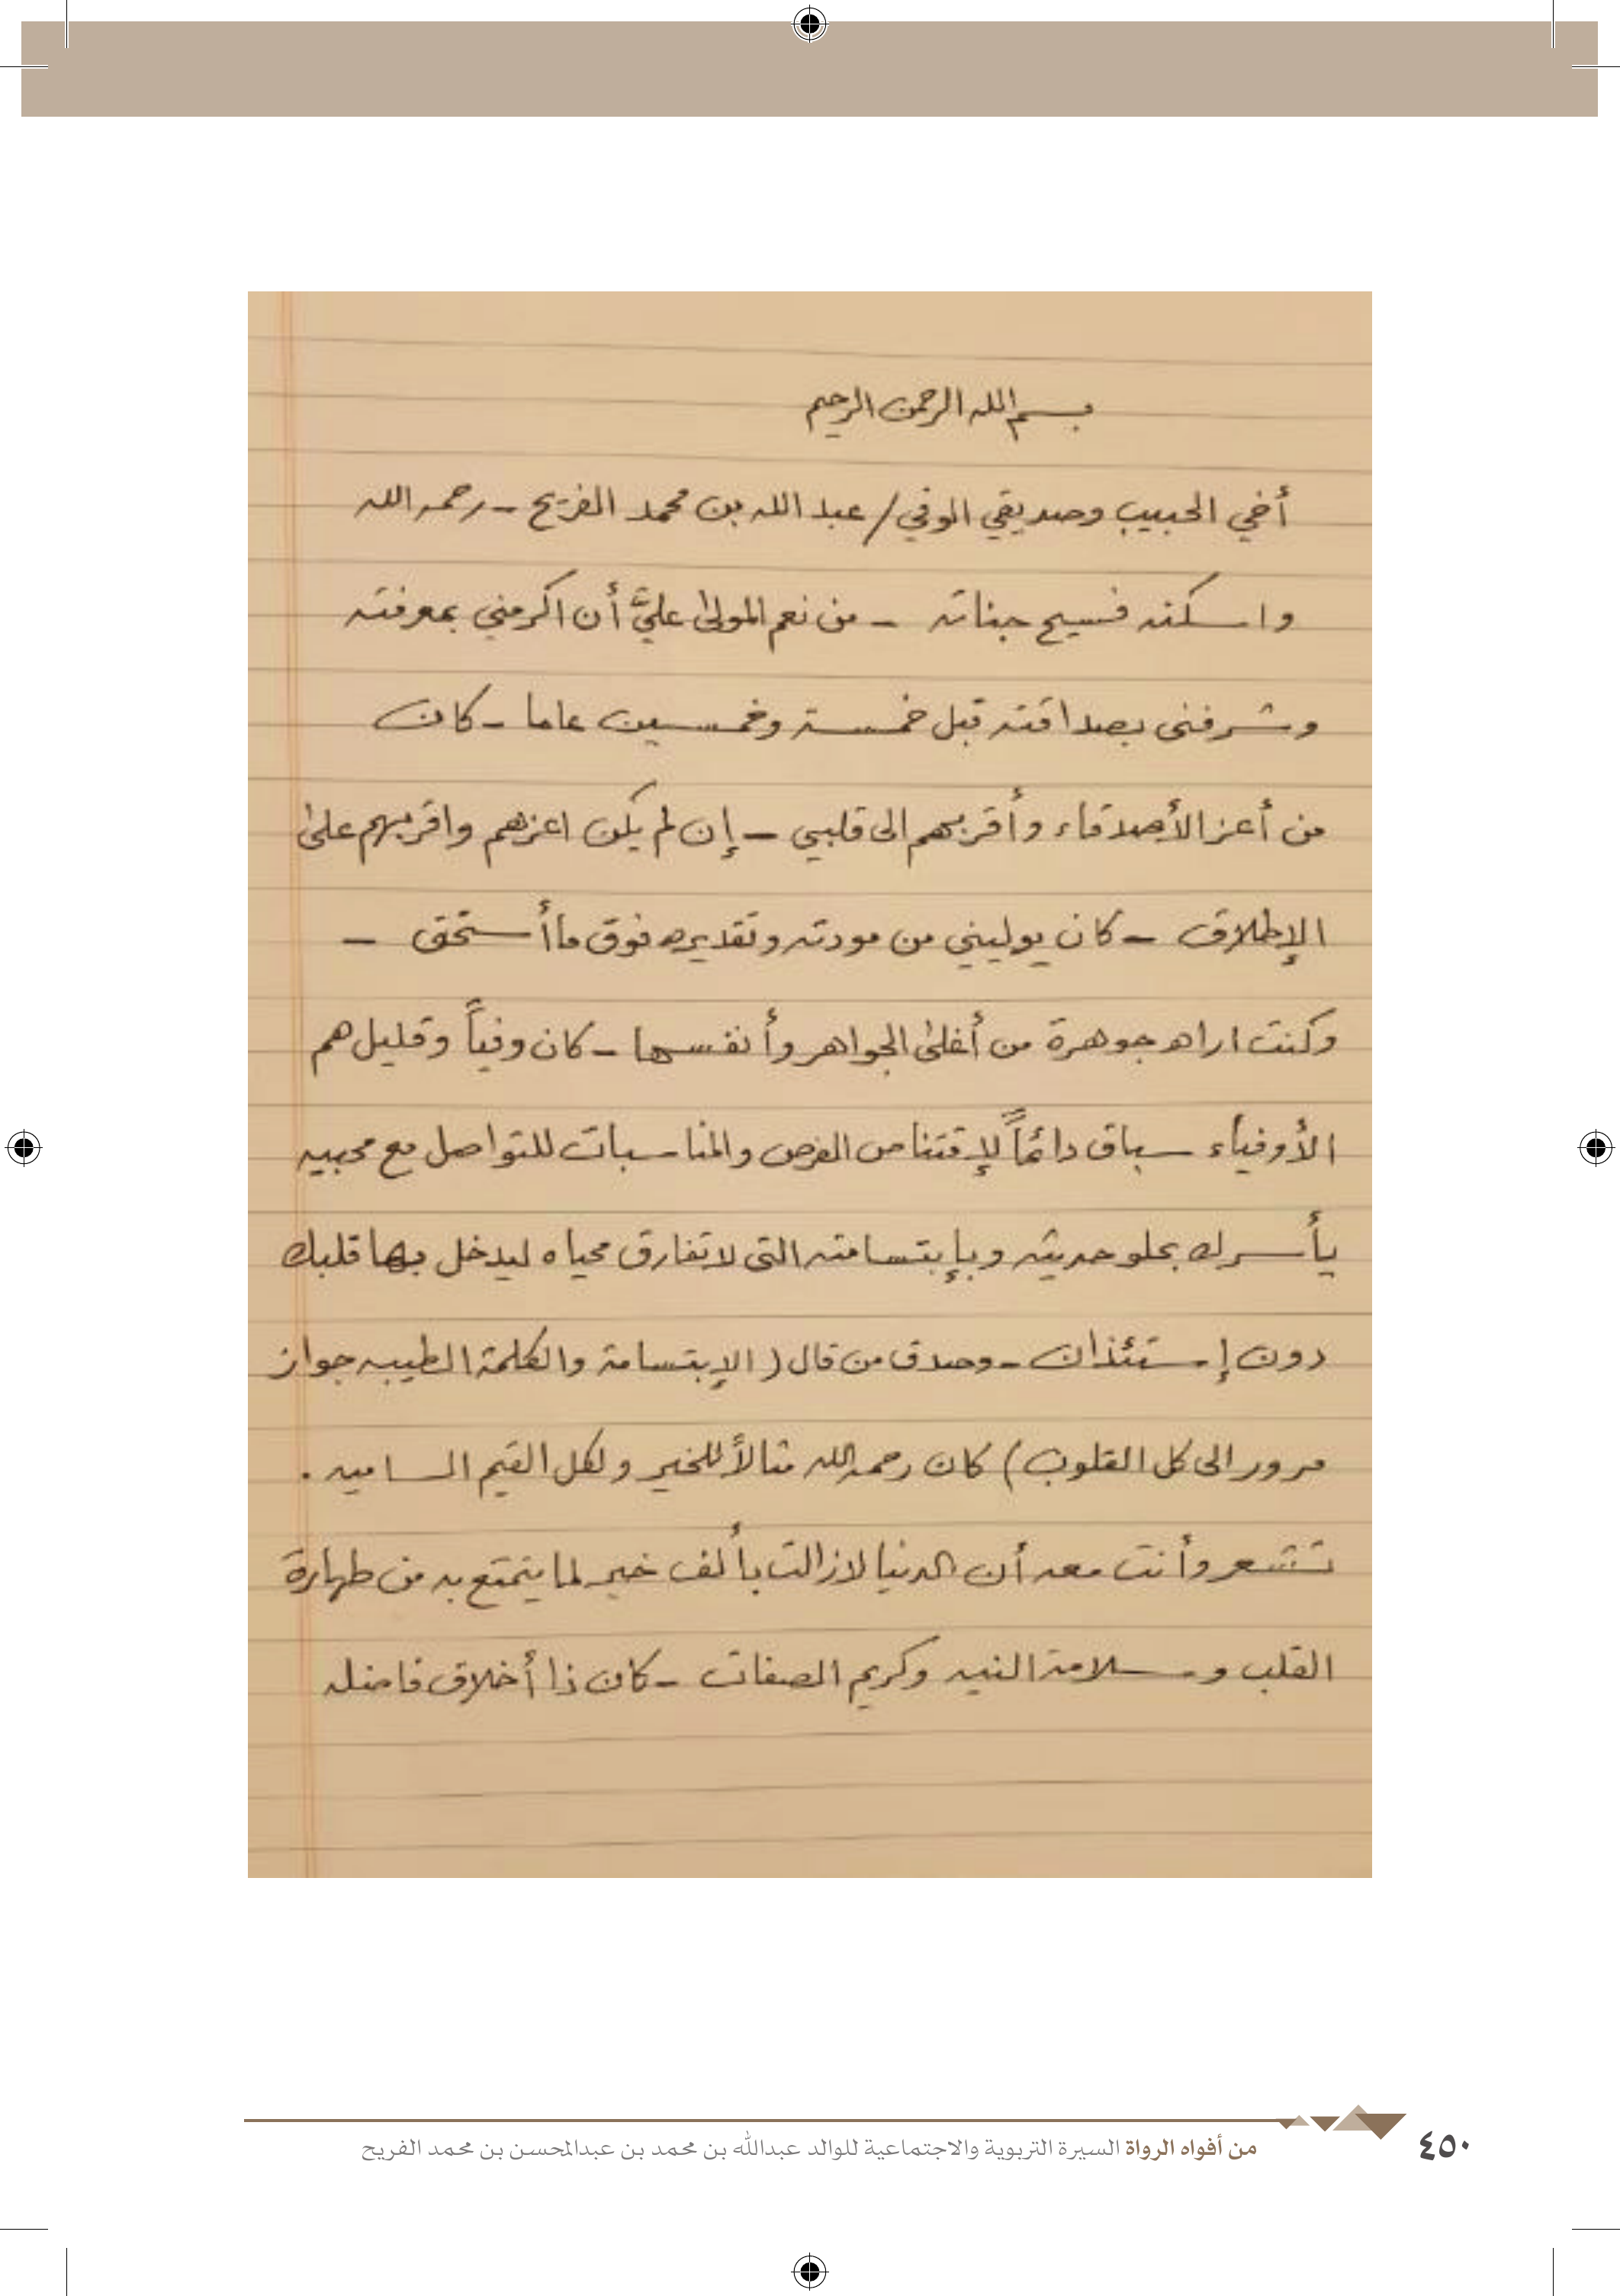 بسم الله الرحمن الرحيم
أخي الحبيب وصديقي الوفي / عبد الله بن محمد الفريح - رحمه الله
واسكنه فسيح جناته - من نعم المولى عليَّ أن اكرمني بمعرفته
وشرفني بصداقته قبل خمسة وخمسين عاما - كان
من أعز الأصدقاء وأقربهم الى قلبي - إن لم يكن اعزهم واقربهم على
الإطلاق - كان يوليني من مودته وتقديره فوق ما أستحق -
وكنت اراه جوهرة من أغلى الجواهر وأنفسها - كان وفياً وقليل هم
الأوفياء سباق دائماً لإقتناص الفرص والمناسبات للتواصل مع محبيه
يأسرك بحلو حديثه وبإبتسامته التى لا تفارق محياه ليدخل بها قلبك
دون إستئذان - وصدق من قال ( الإبتسامة والكلمة الطيبه جواز
مرور الى كل القلوب ) كان رحمه الله مثالاً للخير ولكل القيم الساميه .
تشعر وأنت معه أن الدنيا لازالت بألف خير لما يتمتع به من طهارة
القلب وسلامة النيه وكريم الصفات - كان ذا أخلاق فاضله
من أفواه الرواة السيرة التربوية والاجتماعية للوالد عبدالله بن محمد بن عبدالمحسن بن محمد الفريح
٤٥٠